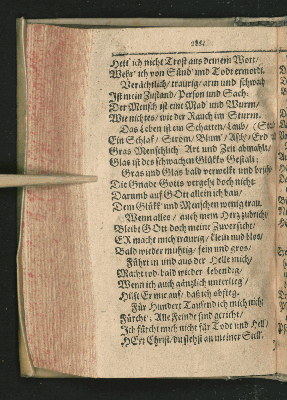 285.
Hett' ich nicht Trost aus deinem Wort/
Wehr' ich von Sünd' und Todt ermordt.
Verächtlich/ traurig/ arm und schwach
Ist mein Zustand/ Person und Sach:
Der Mensch ist eine Mad' und Wurm/
Wie nichtes/ wie der Rauch im Sturm.
Das Leben ist ein Schatten/ Laub/
Ein Schlaf/ Strom/ Blum'/ Asch/ Erd
Gras Menschlich' Art und Zeit abmahlt/
Glas ist des schwachen Glükks Gestalt:
Gras und Glas bald verwelkt und bricht
Die Gnade Gottes vergeht doch nicht:
Darumb auf GOtt allein ich bau/
Dem Glükk' und Menschen wenig trau.
Wenn alles/ auch mein Hertz zubricht/
Bleibt GOtt doch meine Zuversicht/
ER macht mich traurig/ klein und blos/
Bald wieder muhtig/ fein und gros/
Führt in und aus der Helle mich/
Macht tod/ bald wieder lebendig/
Wenn ich auch gäntzlich unterlieg/
Hilft Er mir auf/ daß ich obsieg.
Für Hundert Tausend ich mich nicht
Fürcht'; Alle Feinde sind gericht/
Ich fürcht mich nicht für Todt und Hell/
HErr Christ/ du stehst an meiner Stell.